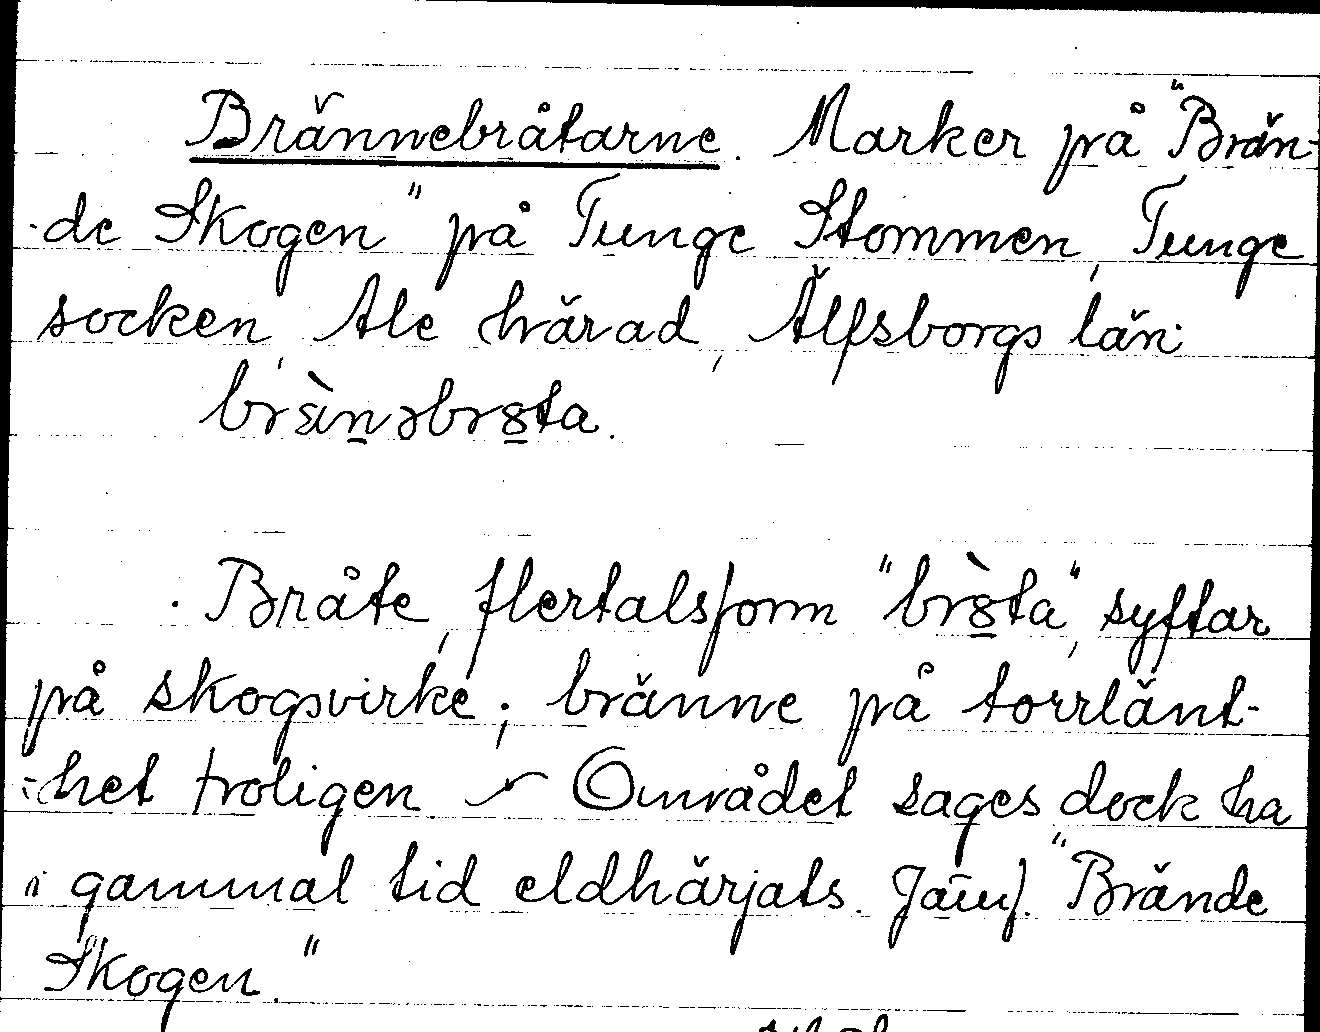 Brännebråtarne. Marker på "Brän-
de Skogen" på Tunge Stommen, Tunge
socken, Ale härad, Älfsborgs län.
Bråte, flertalsform "br8̲̀ta", syftar
på skogsvirke; bränne på torrlänt-
het troligen. – Området sages dock ha
i gammal tid eldhärjats. Jämf. "Brände
Skogen."